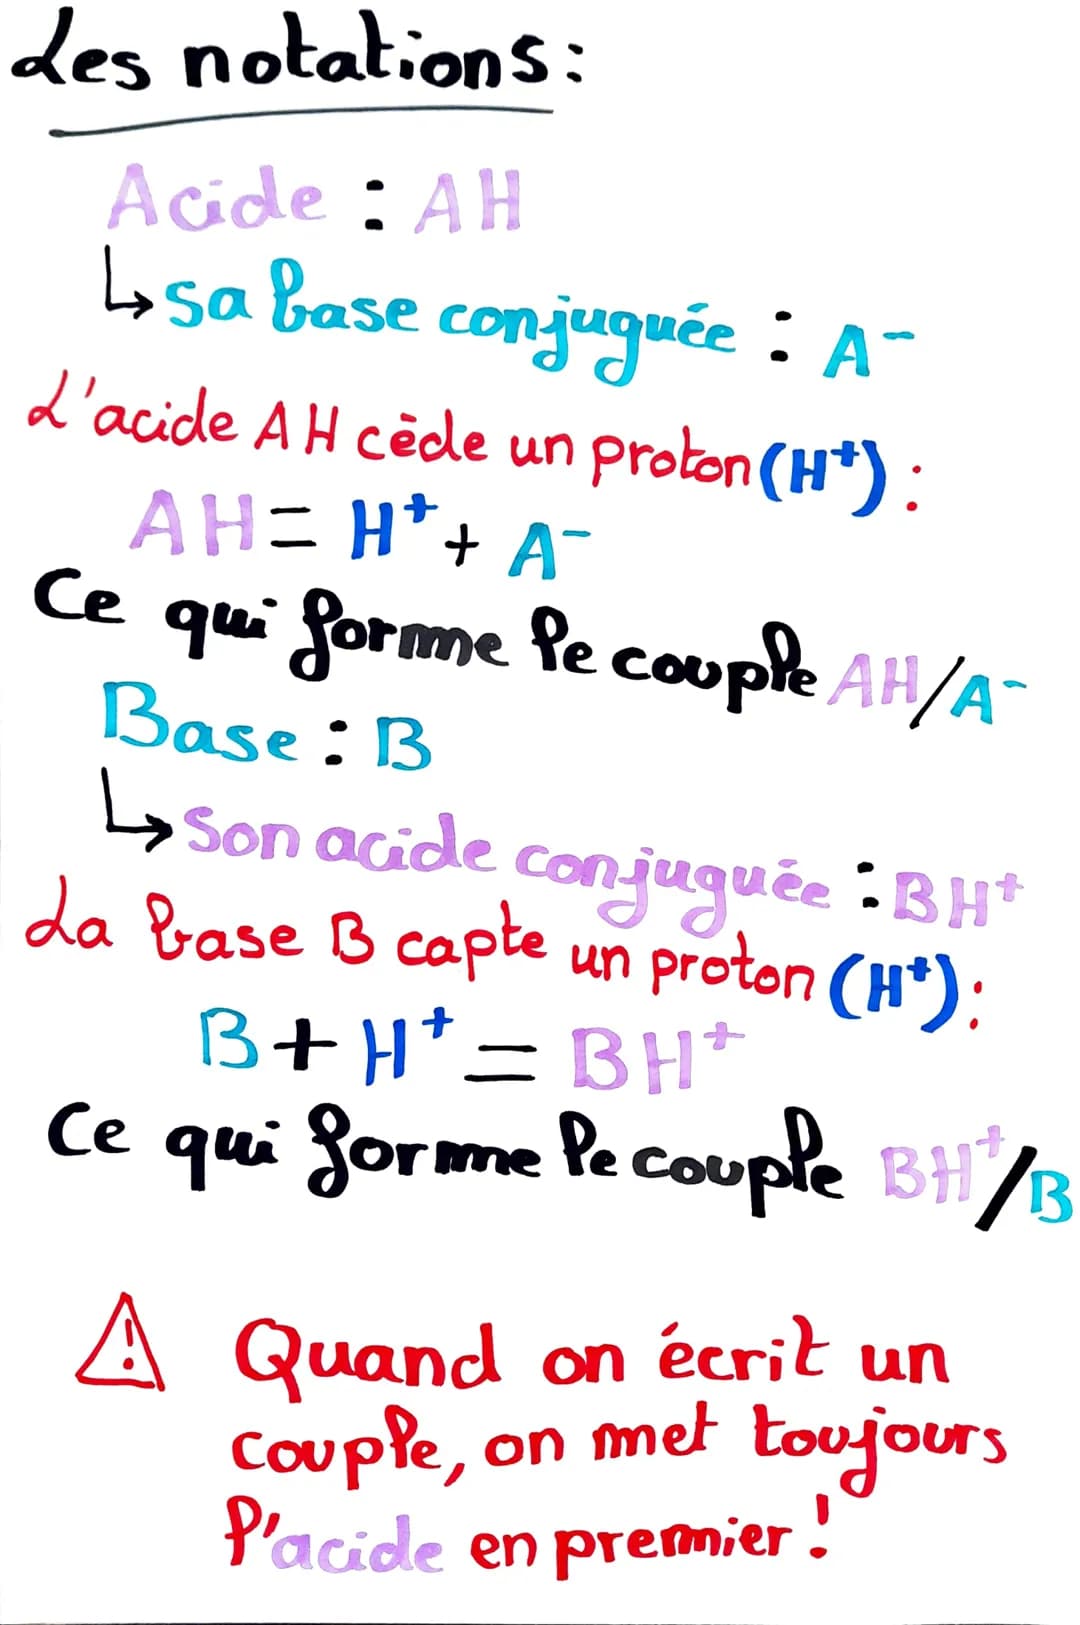 Les notations :
Acide : AH
↳ sa base conjuguée : A⁻
L'acide AH cède un proton (H⁺) :
AH = H⁺ + A⁻
Ce qui forme le couple AH/A⁻
Base : B
↳ Son acide conjuguée : BH⁺
La base B capte un proton (H⁺) :
B + H⁺ = BH⁺
Ce qui forme le couple BH⁺/B
⚠ Quand on écrit un
couple, on met toujours
l'acide en premier !